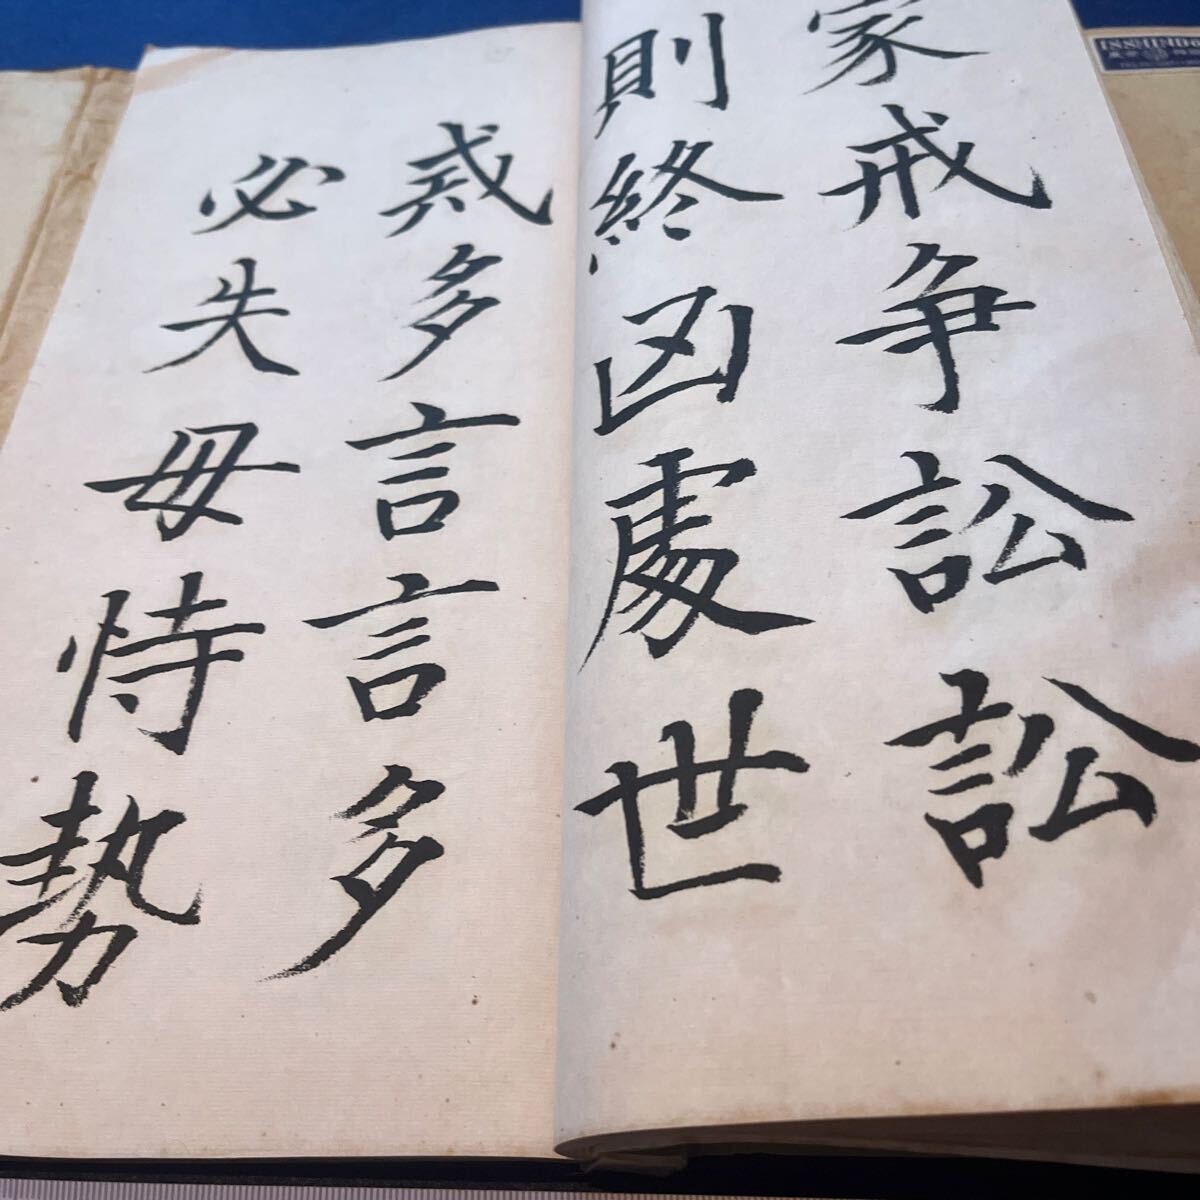 家戒争訟訟
則終凶處世
戒多言言多
必失毋恃勢